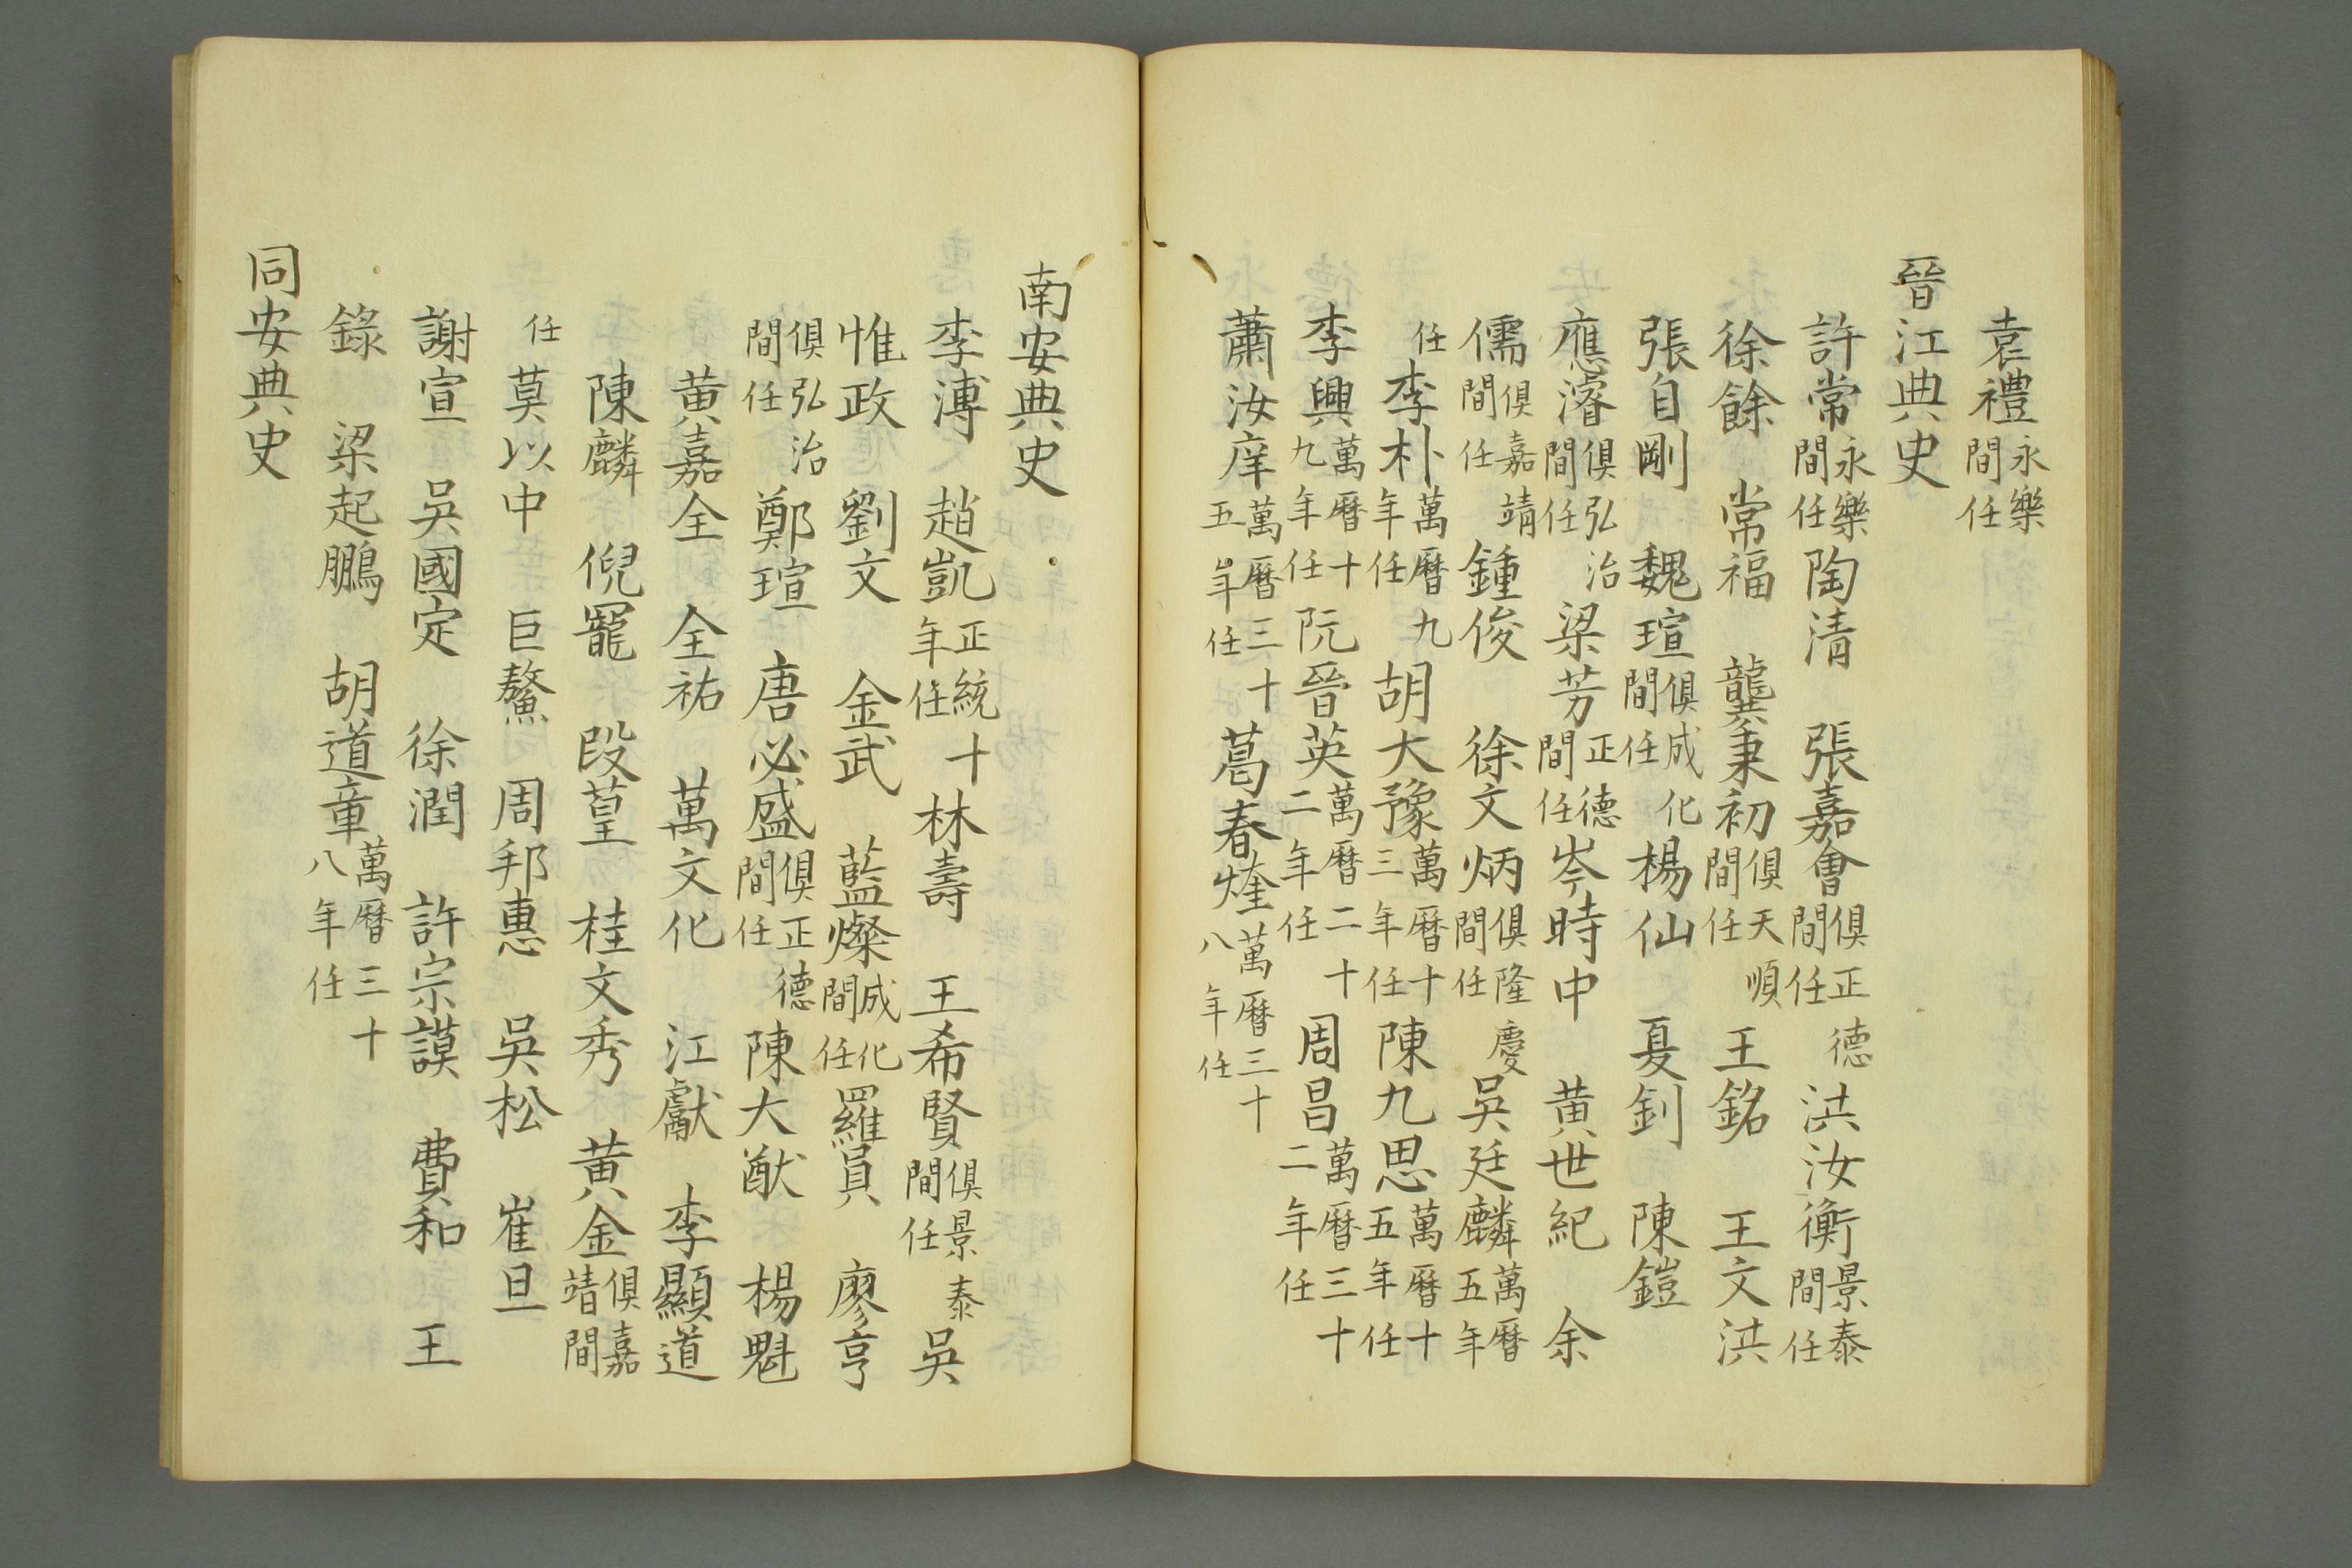 袁禮永樂間任
晉江典史
許常永樂間任陶清　張嘉會俱正德間任洪汝衡景泰間任
徐餘　常福　龔秉初俱天順間任王銘　王文洪
張自剛　魏瑄俱成化間任楊仙　夏釗　陳鎧
應濬俱弘治間任梁芳正德間任岑時中　黄世紀　余
儒俱嘉靖間任鍾俊　徐文炳俱隆慶間任吳廷麟萬曆五年
任李朴萬曆九年任胡大豫萬曆十三年任陳九思萬曆十五年任
李興萬曆十九年任阮晉英萬曆二十二年任周昌萬曆三十二年任
蕭汝庠萬曆三十五年任葛春煃萬曆三十八年任
南安典史
李溥　趙凱正統十年任林壽　王希賢俱景泰間任吳
惟政　劉文　金武　藍燦成化間任羅員　廖亨
俱弘治間任鄭瑄　唐必盛俱正德間任陳大猷　楊魁
黄嘉全　全祐　萬文化　江獻　李顯道
陳麟　倪寵　段葟　桂文秀　黄金俱嘉靖間
任莫以中　巨鰲　周邦惠　吳松　崔旦
謝宣　吳國定　徐潤　許宗謨　費和　王
錄　梁起鵬　胡道章萬曆三十八年任
同安典史